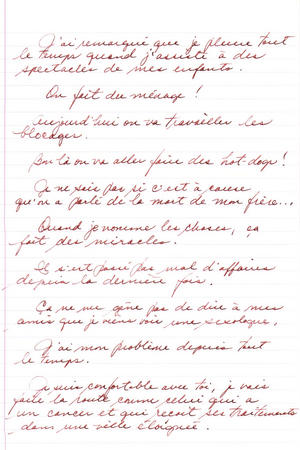 J'ai remarqué que je pleure tout
le temps quand j'assiste à des
spectacles de mes enfants.
On fait du ménage !
Aujourd'hui on va travailler les
blocages.
Bon là on va aller faire des hot-dogs !
Je ne sais pas si c'est à cause
qu'on a parlé de la mort de mon frère...
Quand je nomme les choses, ça
fait des miracles.
Il s'est passé pas mal d'affaires
depuis la dernière fois.
Ça ne me gêne pas de dire à mes
amis que je viens voir une sexologue.
J'ai mon problème depuis tout
le temps.
Je suis confortable avec toi, je vais
faire la route comme celui qui a
un cancer et qui reçoit ses traitements
dans une ville éloignée.